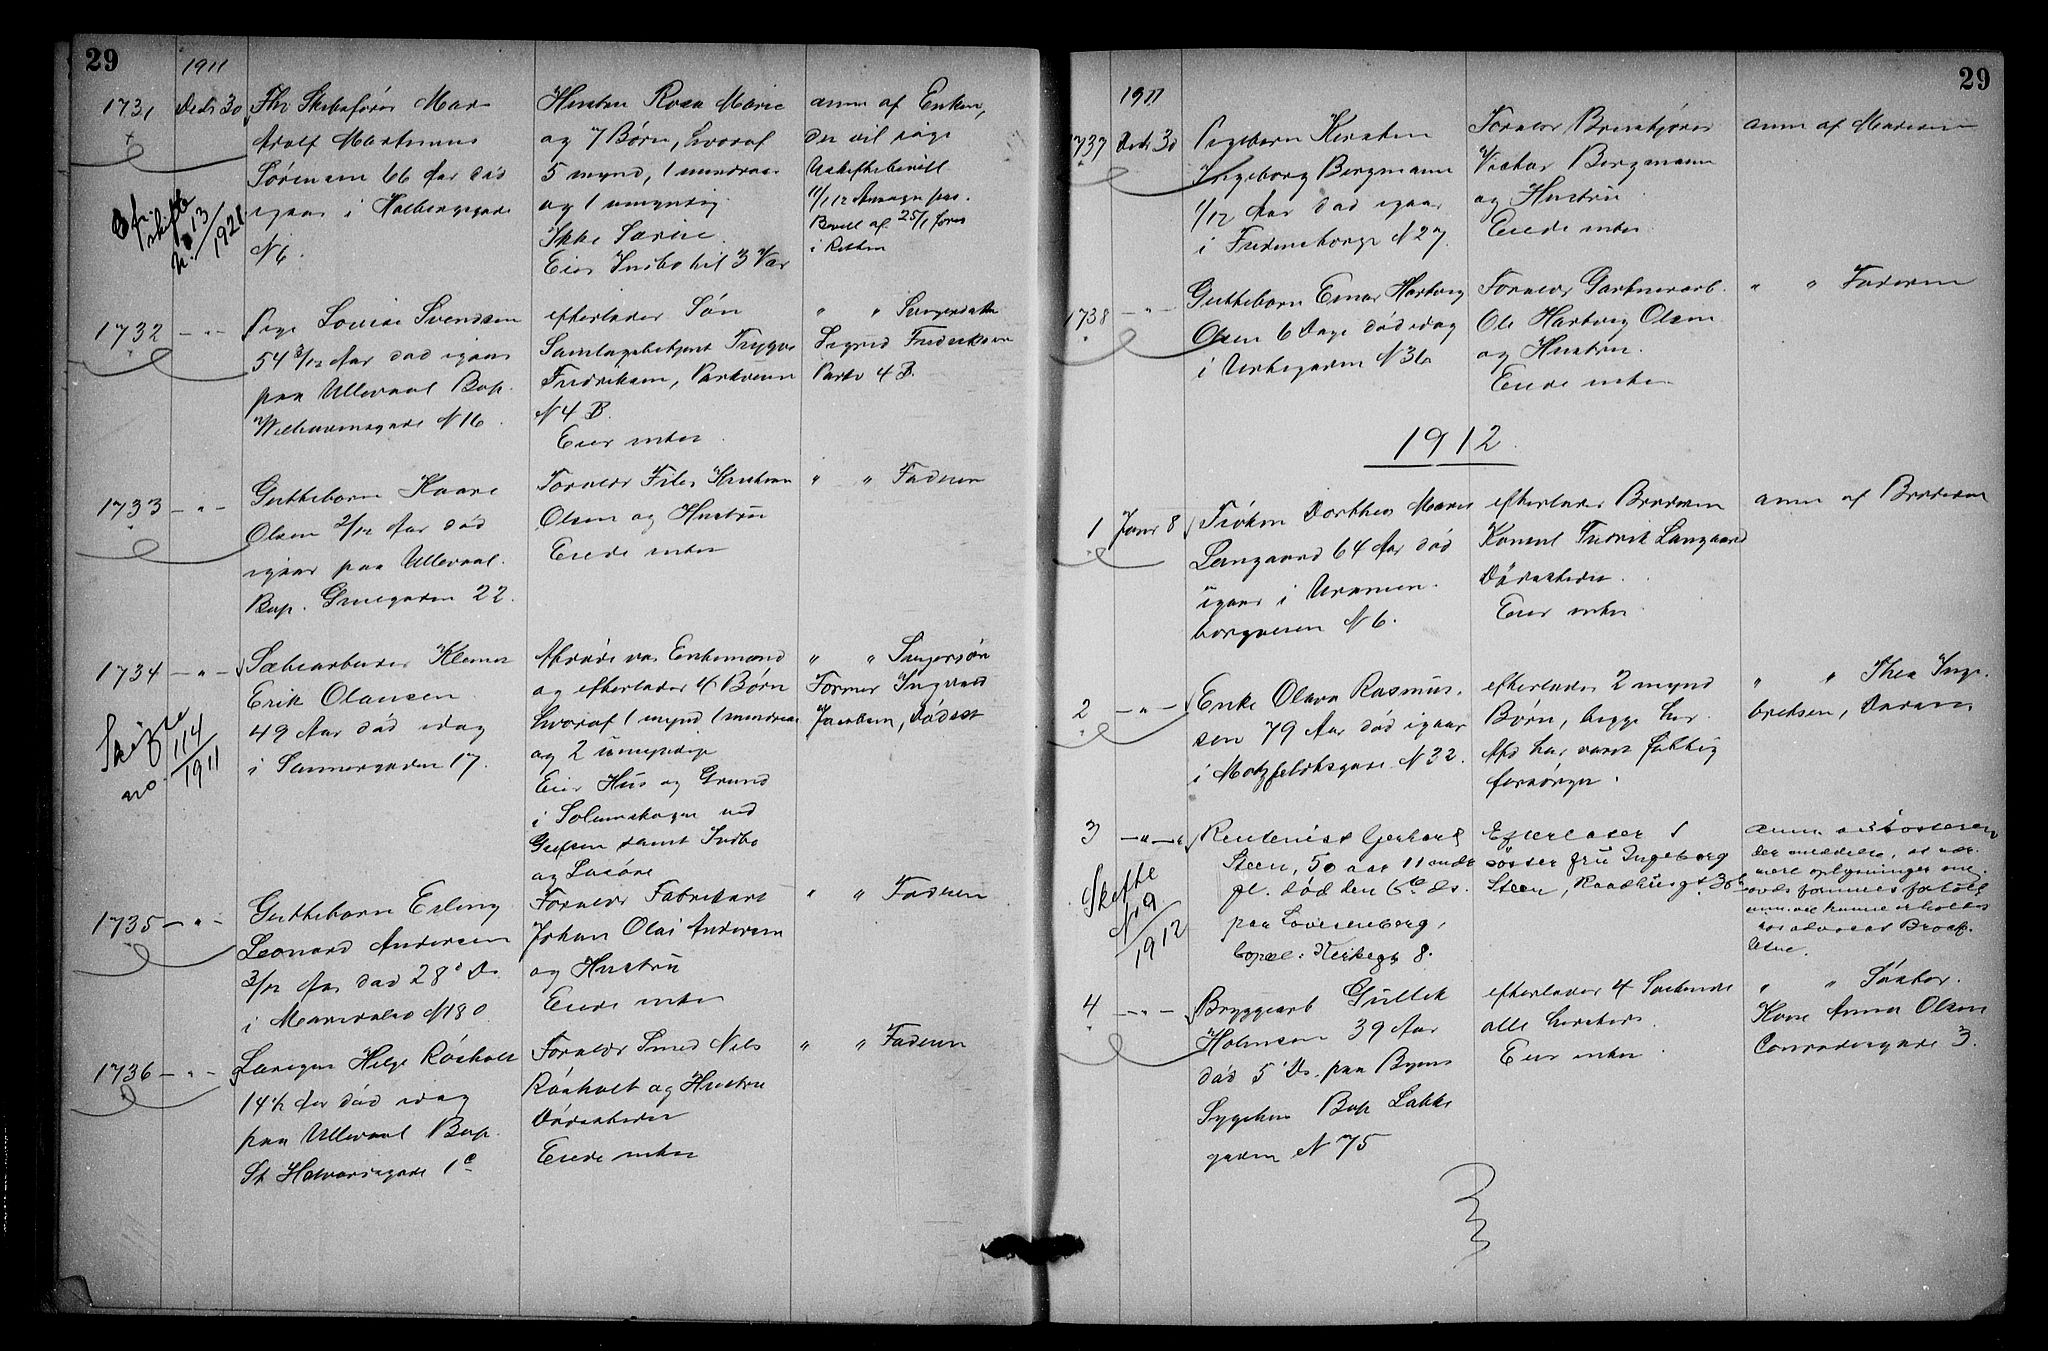 29
1911
1731 Decbr 30 Fhv Skibsfører Max
Adolf Martinius
Sörensen 66 Aar död
igaar i Holbergsgade
N 6.
Hustru Rosa Marie
og 7 Børn, hvoraf
5 mynd, 1 mindreaar
og 1 umyndig.
Ikke Særeie.
Eier Indbo til 3 Vær
anm af Enken,
der vil søge
Uskiftebevill
11/1 12
Bevill af 25/1 forev
i Retten
skifte
13/1921
1732 - " - Pige Lovise Svendsen
54 3/12 Aar død igaar
paa Ullevaal Bop.
Welhavensgade N 16.
efterlader Søn
Samlagsbetjent Trygve
Fredriksen, Parkveien
N 4 B.
Eier intet.
" " Svigerdatter
Sigrid Fredriksen
Parkv 4 B.
1733 - " - Guttebarn Kaare
Olsen 2/12 Aar død
igaar paa Ullevaal.
Bop. Gruegaden 22.
Forældr Filer Kristian
Olsen og Hustru
Eiede intet
" " Faderen
1734 - " - Sæbearbeider Klemet
Erik Olaussen
49 Aar död idag
i Sannergaden 17.
Afdøde var Enkemand
og efterlader 4 Børn
hvoraf 1 mynd 1 mindreaar
og 2 umyndige
Eier Hus og Grund
i Solemskogen ved
Grefsen samt Indbo
og Løsøre
" " Svigersøn
Former Ingvald
Jacobsen, Dødsst
Skifte
no 114/1911
1735 - " - Guttebarn Erling
Leonard Andersen
3/12 Aar død 28' Ds
i Maridalsv N 180
Forældr Fabrikarb
Johan Olai Andersen
og Hustru
Eiede intet
" " Faderen
1736 - " - Læregut Helge Röshölt
14 1/2 Aar död idag
paa Ullevaal Bop.
St Halvardsgade 1 c
Forældr Smed Nils
Røsholt og Hustru
Dødsstedet
Eiede intet
" " Faderen
29
1911
1737 Decbr 30 Pigebarn Kirsten
Ingeborg Bergmann
1/12 Aar død igaar
i Fredensborgv N 27.
Forældr
Victor Bergmann
og Hustru
Eiede intet.
anm af Moderen
1738 - " - Guttebarn Einar Hartvig
Olsen 6 Dage död idag
i N 36
Forældr Gartnerarb.
Ole Hartvig Olsen
og Hustru.
Eiede intet
" " Faderen
1912.
1 Janr 8 Frøken Dorthea Marie
Langaard 64 Aar død
igaar i Uranien-
borgveien N 6.
efterlader Broderen
Konsul Fredrik Langaard
Dödsstedet.
Eier intet
anm af Broderen
2 - " - Enke Olava Rasmus-
sen 79 Aar død igaar
i Motzfeldtsgade N 32.
efterlader 2 mynd
Børn, begge her.
Afd har været fattig
forsørget.
" " Thea Inge-
bretsen, Datter
3 - " - Rentenist Gerhard
Steen, 50 aar 11 mdr
gl. død den 6te ds.
paa Lovisenberg,
bopæl: Kirkegt 8.
Efterlader 1
søster fru Ingeborg
Steen, Raadhusgt 30 b
anm af søsteren
der meddelte, at nær-
mere oplysninger
hos advocat
Skifte
N 9/1912
4 - " - Bryggearb Gullik
Holmsen 39 Aar
død 5' Ds. paa Byens
Sygehus Bop Lakke
gaden N 75
efterlader 4 Søskende
alle hersteds.
Eier intet.
" " Søster.
Kone Anna Olsen
Conradisgade 3.